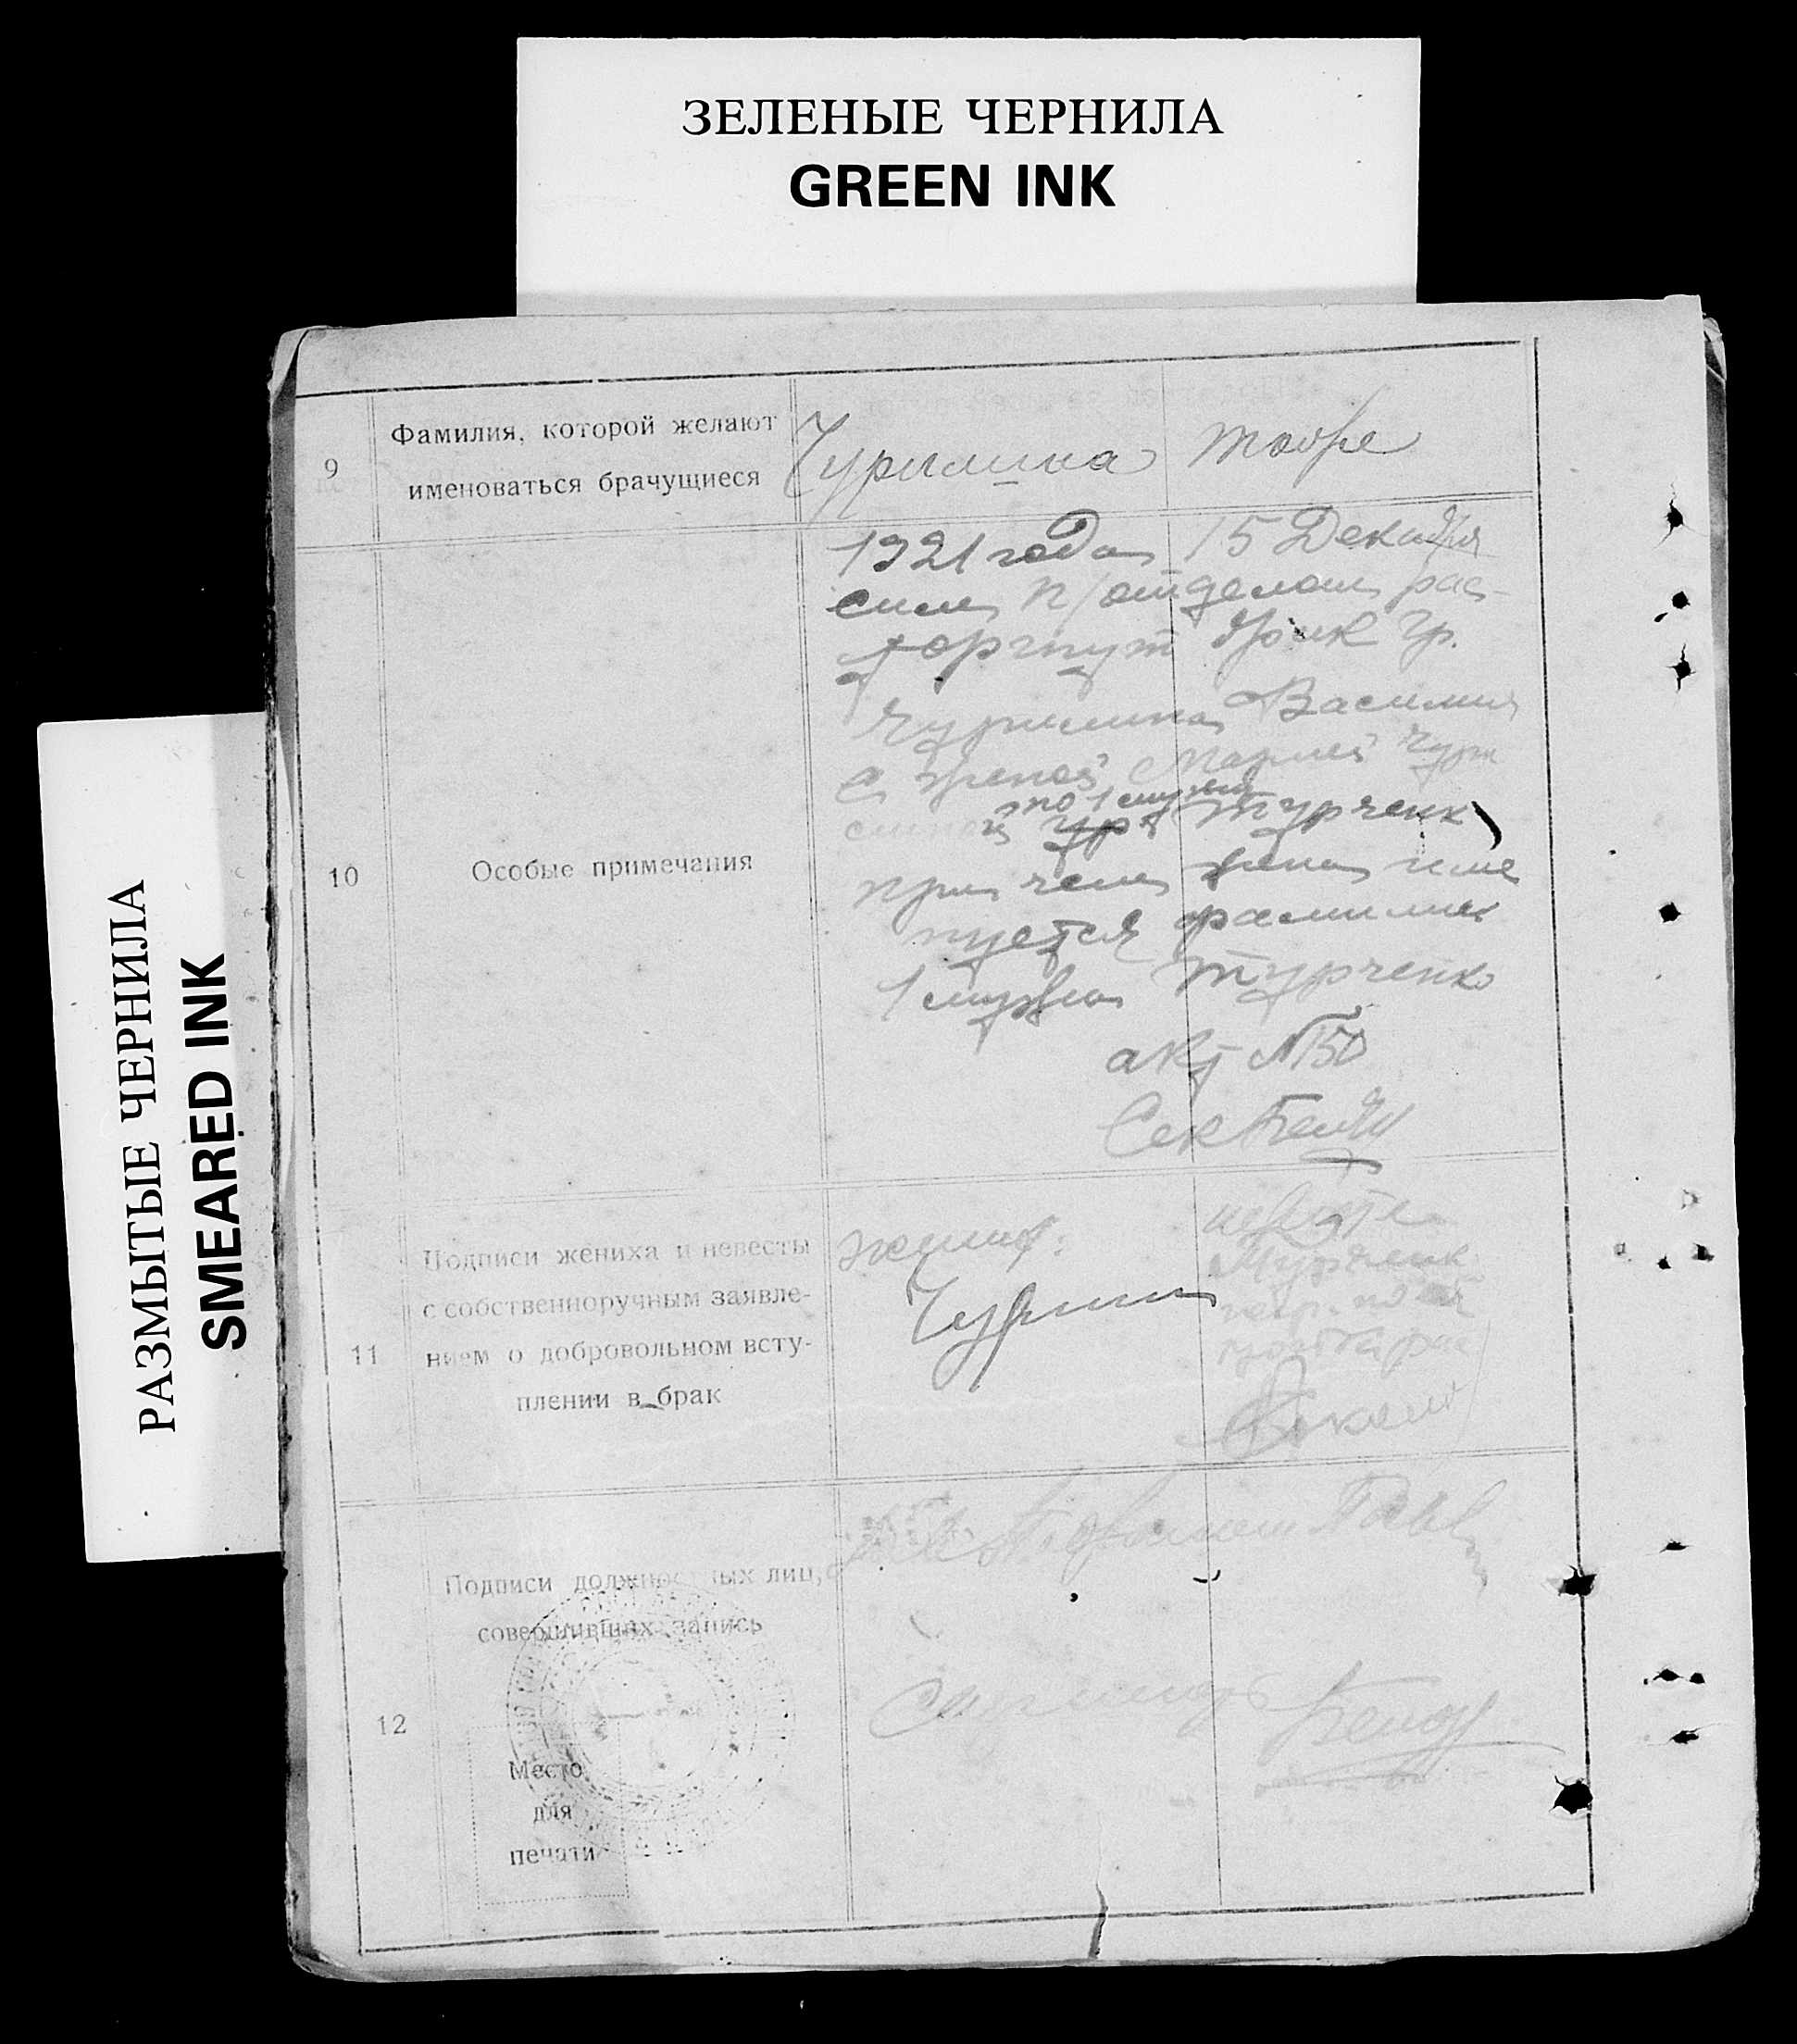 ЗЕЛЕНЫЕ ЧЕРНИЛА
GREEN INK
РАЗМЫТЫЕ ЧЕРНИЛА
SMEARED INK
9
Фамилия, которой желают
именоваться брачущиеся
Чурилина тоже
10
Особые примечания
1921 года 15 Декабря
сим п/отделом рас-
торгнут брак гр.
Чурилина Василия
с женой Марией Чури
линой по 1 мужу Турченко
при чем жена име
нуется фамилией
1 мужа Турченко
акт №50
Сек
11
Подписи жениха и невесты
с собственноручным заявле-
нием о добровольном всту-
плении в брак
жених:
Чурилин
невеста
Турченк
12
Подписи должностных лиц,
совершивших запись
Место
для
печати